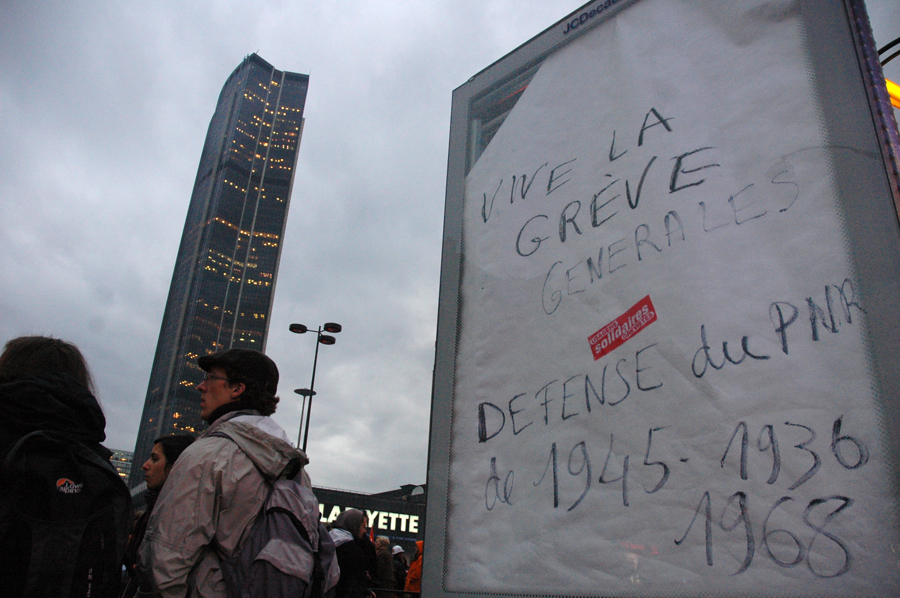 JCDecau
VIVE LA
GRÈVE
GENERALES
solidaires
DEFENSE du PNR
de 1945 - 1936
1968
LAFAYETTE
Lowe
alpine